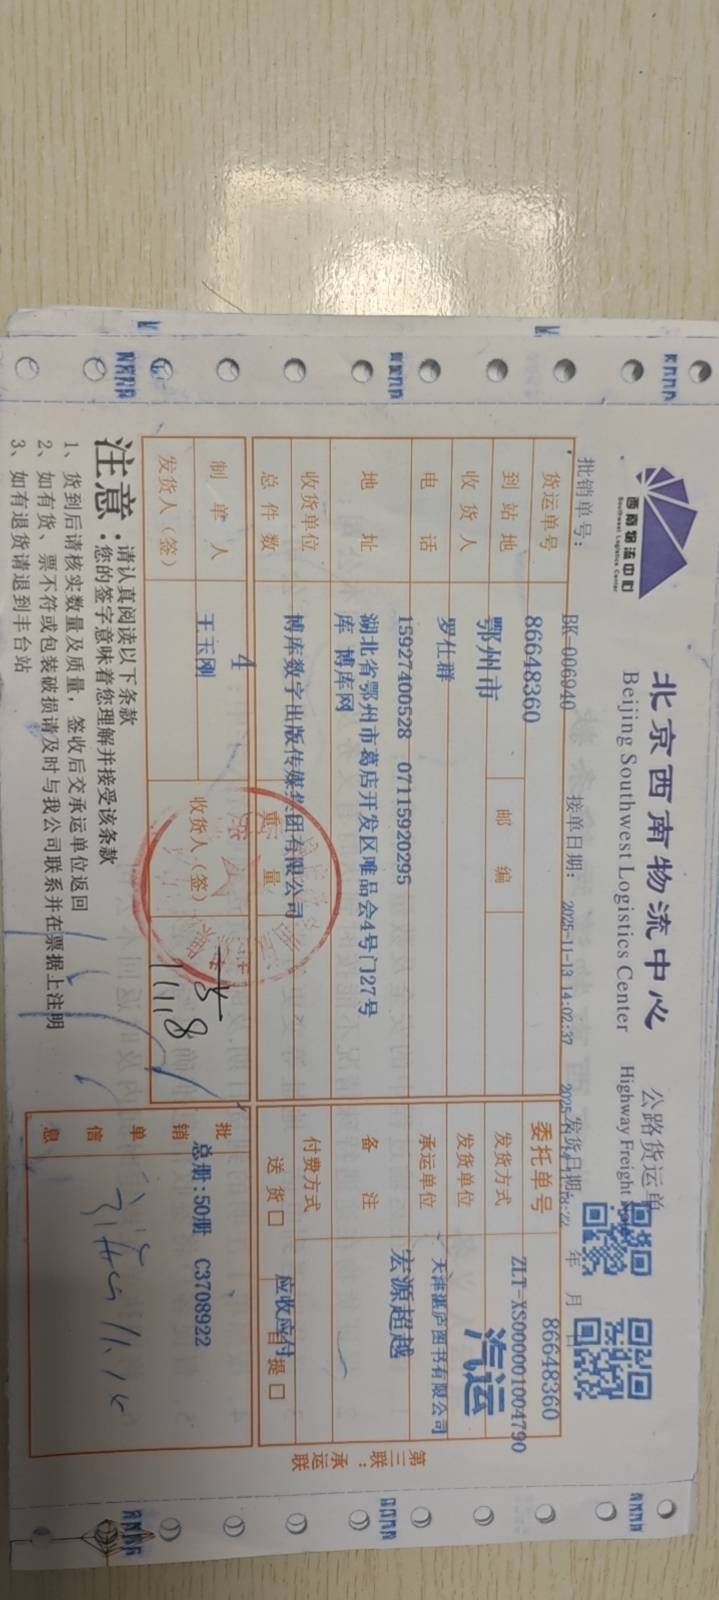 西南物流中心
Southwest Logistics Center
北京西南物流中心
公路货运单
Beijing Southwest Logistics Center
Highway Freight
批销单号： BK-006940 接单日期： 2025-11-13 14:02:37 发货日期： 年 月 日
货运单号 86648360 委托单号 86648360
ZLT-XS000001004790
到站地 鄂州市 邮编 发货方式 汽运
收货人 罗仕群 发货单位 天津湛庐图书有限公司
电话 15927400528 07115920295 承运单位 宏源超越
地址 湖北省鄂州市葛店开发区唯品会4号门27号
库 博库网
备注
收货单位 博库数字出版传媒集团有限公司 付费方式 应收应付
总件数 4 重量 送货口 自提口
制单人 王玉刚 收货人（签）
发货人（签）
11.18
批销单信息 总册:50册 C3708922
第三联：承运联
注意：请认真阅读以下条款
您的签字意味着您理解并接受该条款
1、货到后请核实数量及质量，签收后交承运单位返回
2、如有货、票不符或包装破损请及时与我公司联系并在票据上注明
3、如有退货请退到丰台站